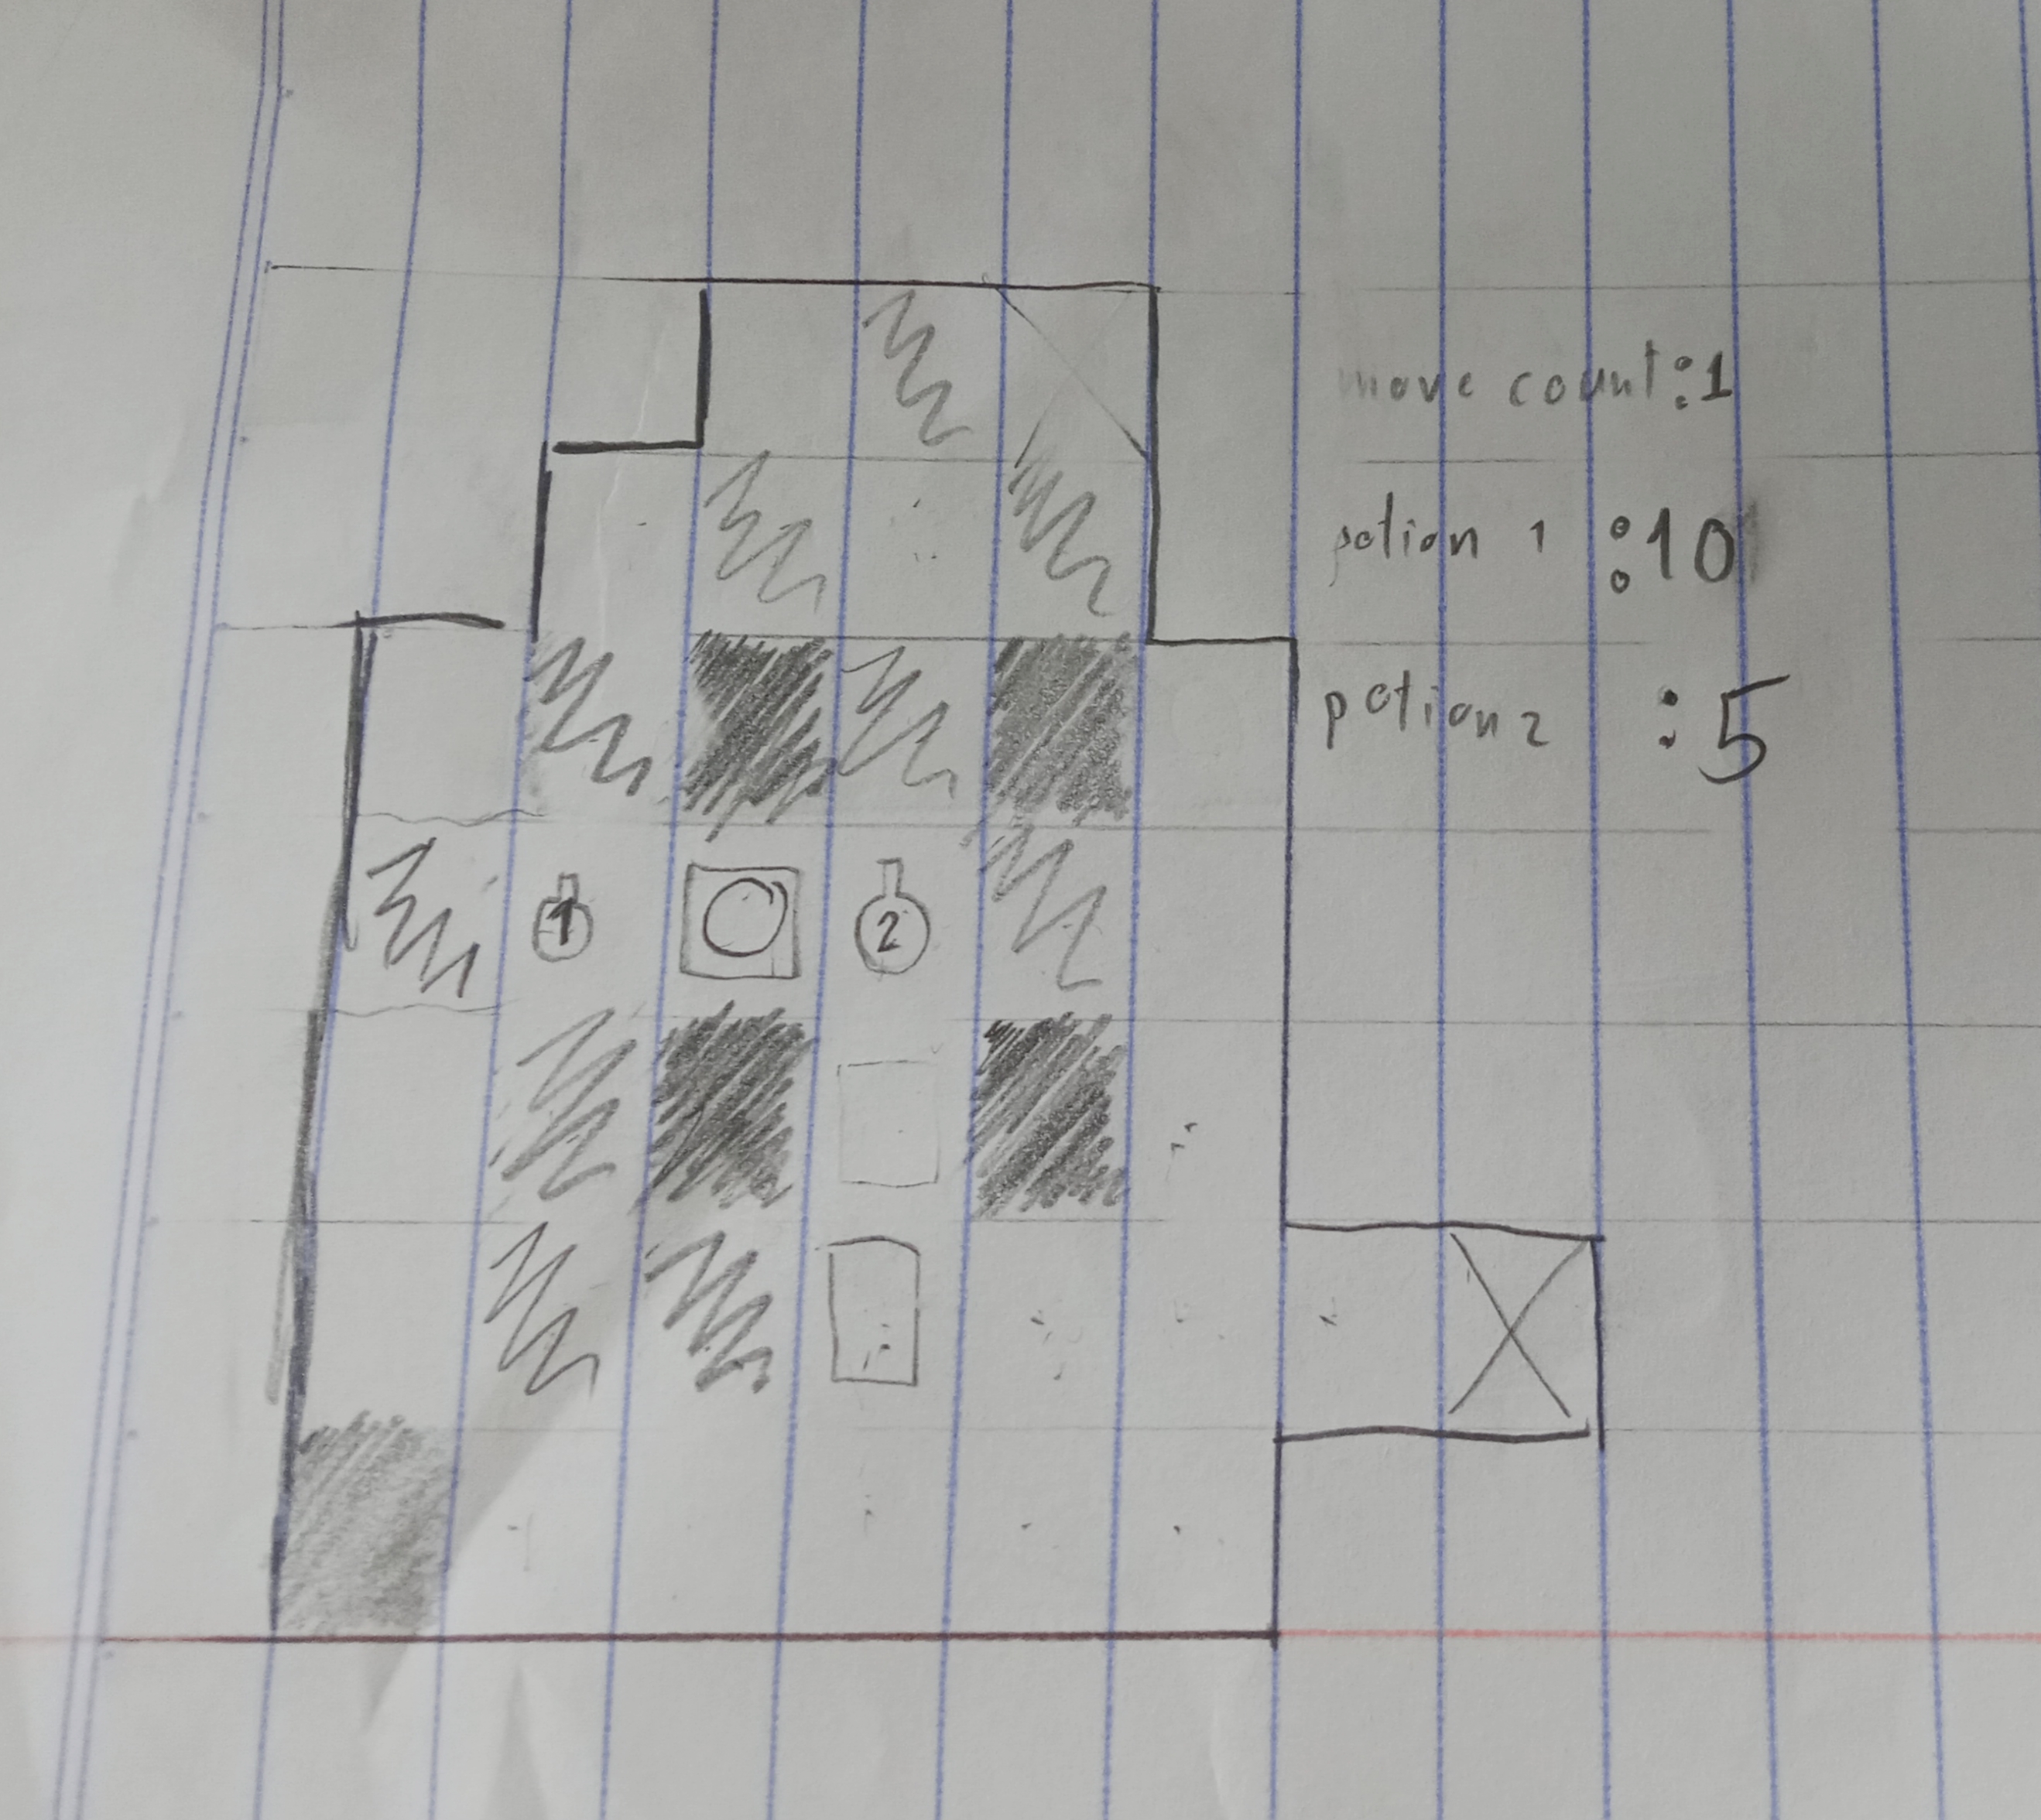 move count:1
potion 1 :10
potion 2 :5
1
2